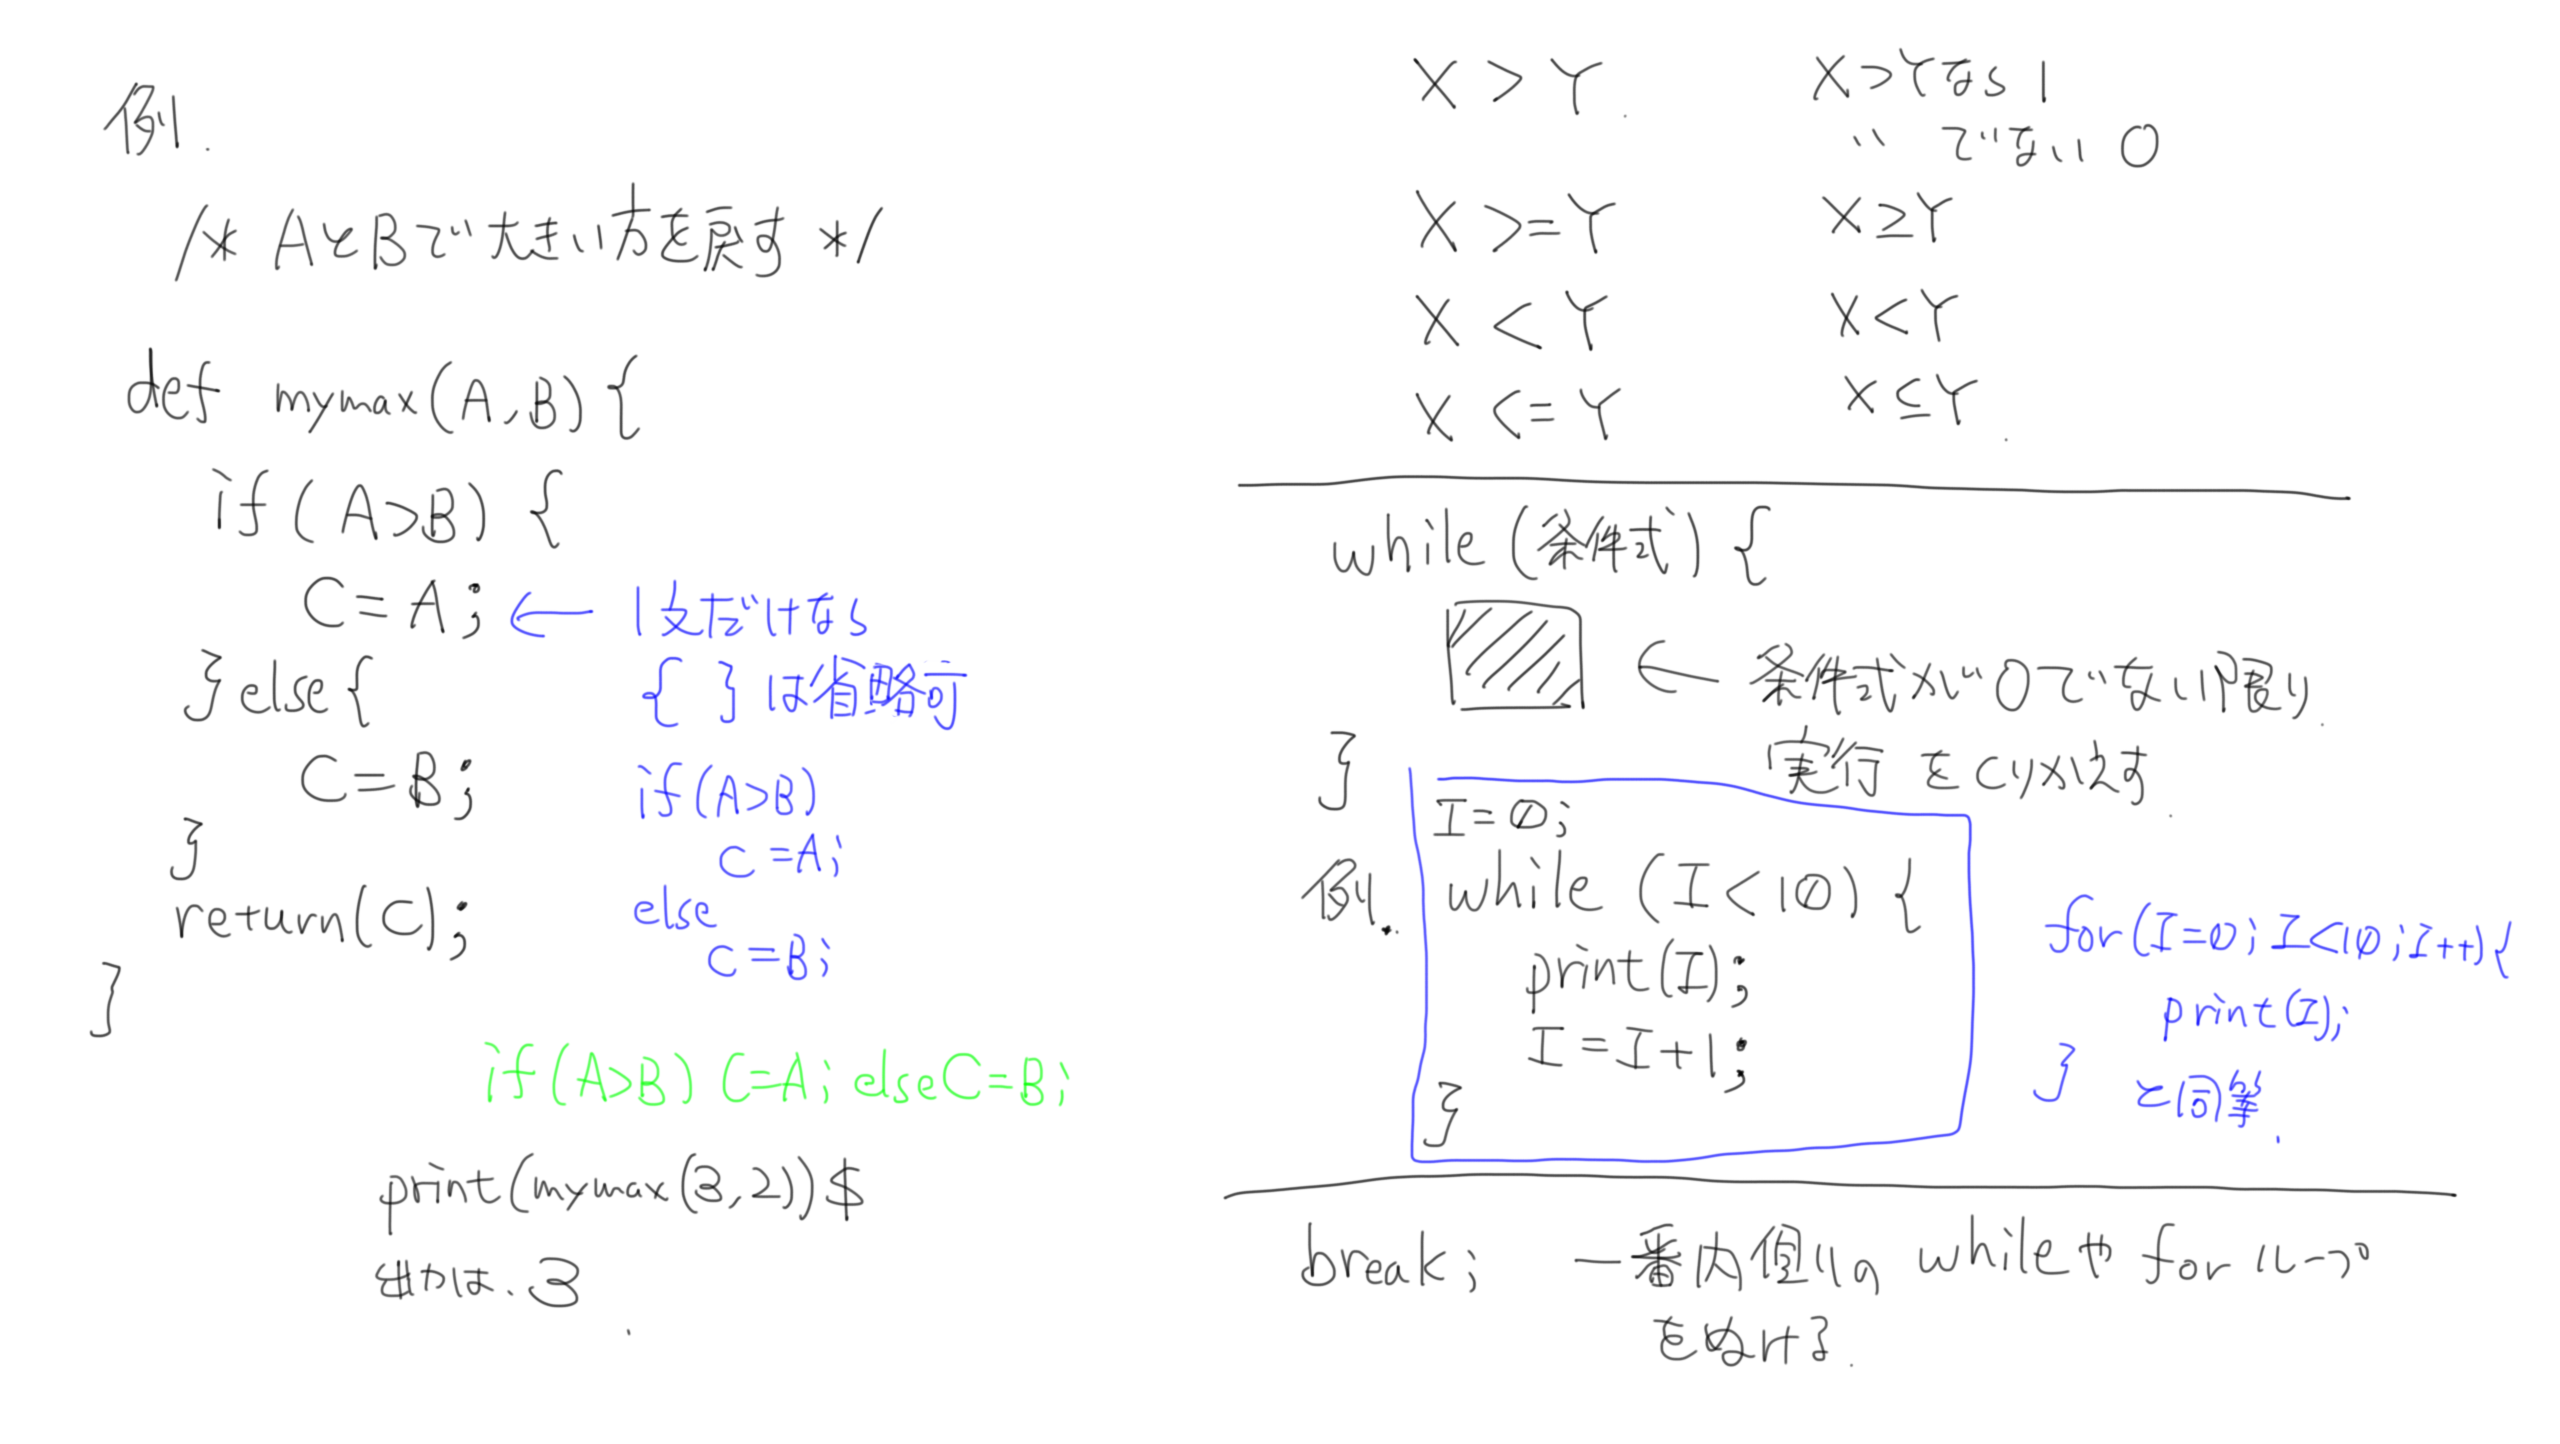 例.
/* AとBで大きい方を戻す */
def mymax(A,B){
if(A>B) {
C=A;
}else{
C=B;
}
return(C);
}
← 1文だけなら
{ }は省略可
if(A>B)
C=A;
else
C=B;
if(A>B) C=A; else C=B;
print(mymax(3,2))$
出力は、3
X > Y X>Yなら 1
〃 でない 0
X >= Y X≧Y
X < Y X<Y
X <= Y X≦Y
while (条件式) {
← 条件式が0でない限り
実行 をくりかえす
}
例.
I=0;
while (I<10) {
print(I);
I=I+1;
}
for(I=0; I<10; I++){
print(I);
} と同等.
break; 一番内側の whileや for ループ
をぬける.